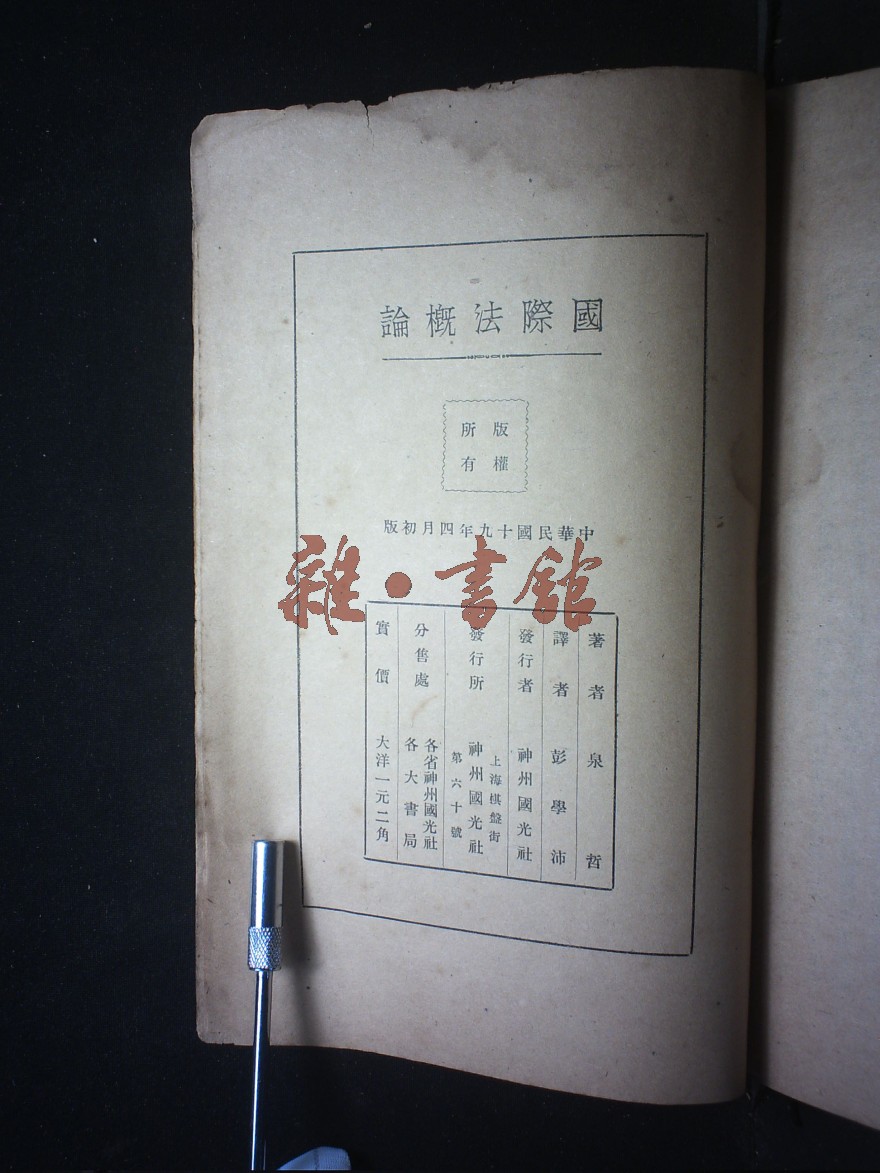 國際法概論
版權
所有
中華民國十九年四月初版
雜·書館
著者 泉哲
譯者 彭學沛
發行者 神州國光社
發行所 上海棋盤街 神州國光社 第六十號
分售處 各省神州國光社 各大書局
實價 大洋一元二角